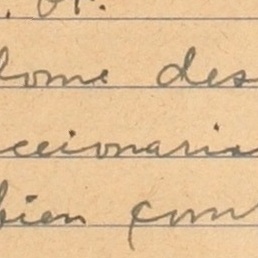 lome des
ccionaria
bien com